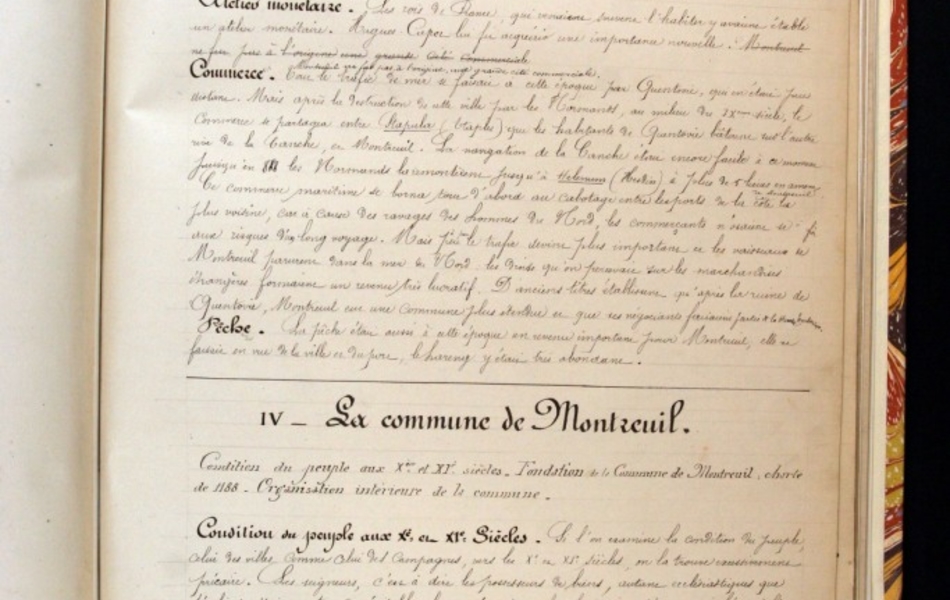 Atelier monétaire. Les rois de France, qui venaient souvent l'habiter y avaient établi
un atelier monétaire. Hugues-Capet lui fit acquérir une importance nouvelle. Montreuil
ne fut pas à l'origine une grande cité commerciale
Montreuil ne fut pas à l'origine, une grande cité commerciale.
Commerce. Tout le trafic de mer se faisait à cette époque par Quentovic, qui en était peu
distant. Mais après la destruction de cette ville par les Normands, au milieu du IXème siècle, le
commerce se partagea entre Stapula (Etaples) que les habitants de Quentovic bâtirent sur l'autre
rive de la Canche, et Montreuil. La navigation de la Canche était encore facile à ce moment
puisqu'en 881 les Normands la remontèrent jusqu'à Helenum (Hesdin) à plus de 5 lieues en amont
de Montreuil
Ce commerce maritime se borna tout d'abord au cabotage entre les ports de la côte la
plus voisine, car à cause des ravages des hommes du Nord, les commerçants n'osaient se
aux risques d'un long voyage. Mais peu le trafic devint plus important et les vaisseaux de
Montreuil parurent dans la mer du Nord; les droits qu'on percevait sur les marchandises
étrangères formaient un revenu très lucratif. D'anciens titres établissent qu'après la ruine de
Quentovic, Montreuil eut une commune plus étendue et que ses négociants faisaient partie de la
Pêche. La pêche était aussi à cette époque un revenu important pour Montreuil, elle se
faisait en vue de la ville et du port, le hareng y était très abondant.
IV - La commune de Montreuil.
Condition du peuple aux Xe et XIe siècles - Fondation de la Commune de Montreuil, charte
de 1188 - Organisation intérieure de la commune.
Condition du peuple aux Xe et XIe Siècles. Si l'on examine la condition du peuple,
celui des villes comme celui des campagnes, vers les Xe et XIe siècles, on la trouve
précaire. Les seigneurs, c'est à dire les possesseurs de biens, autant ecclésiastiques que